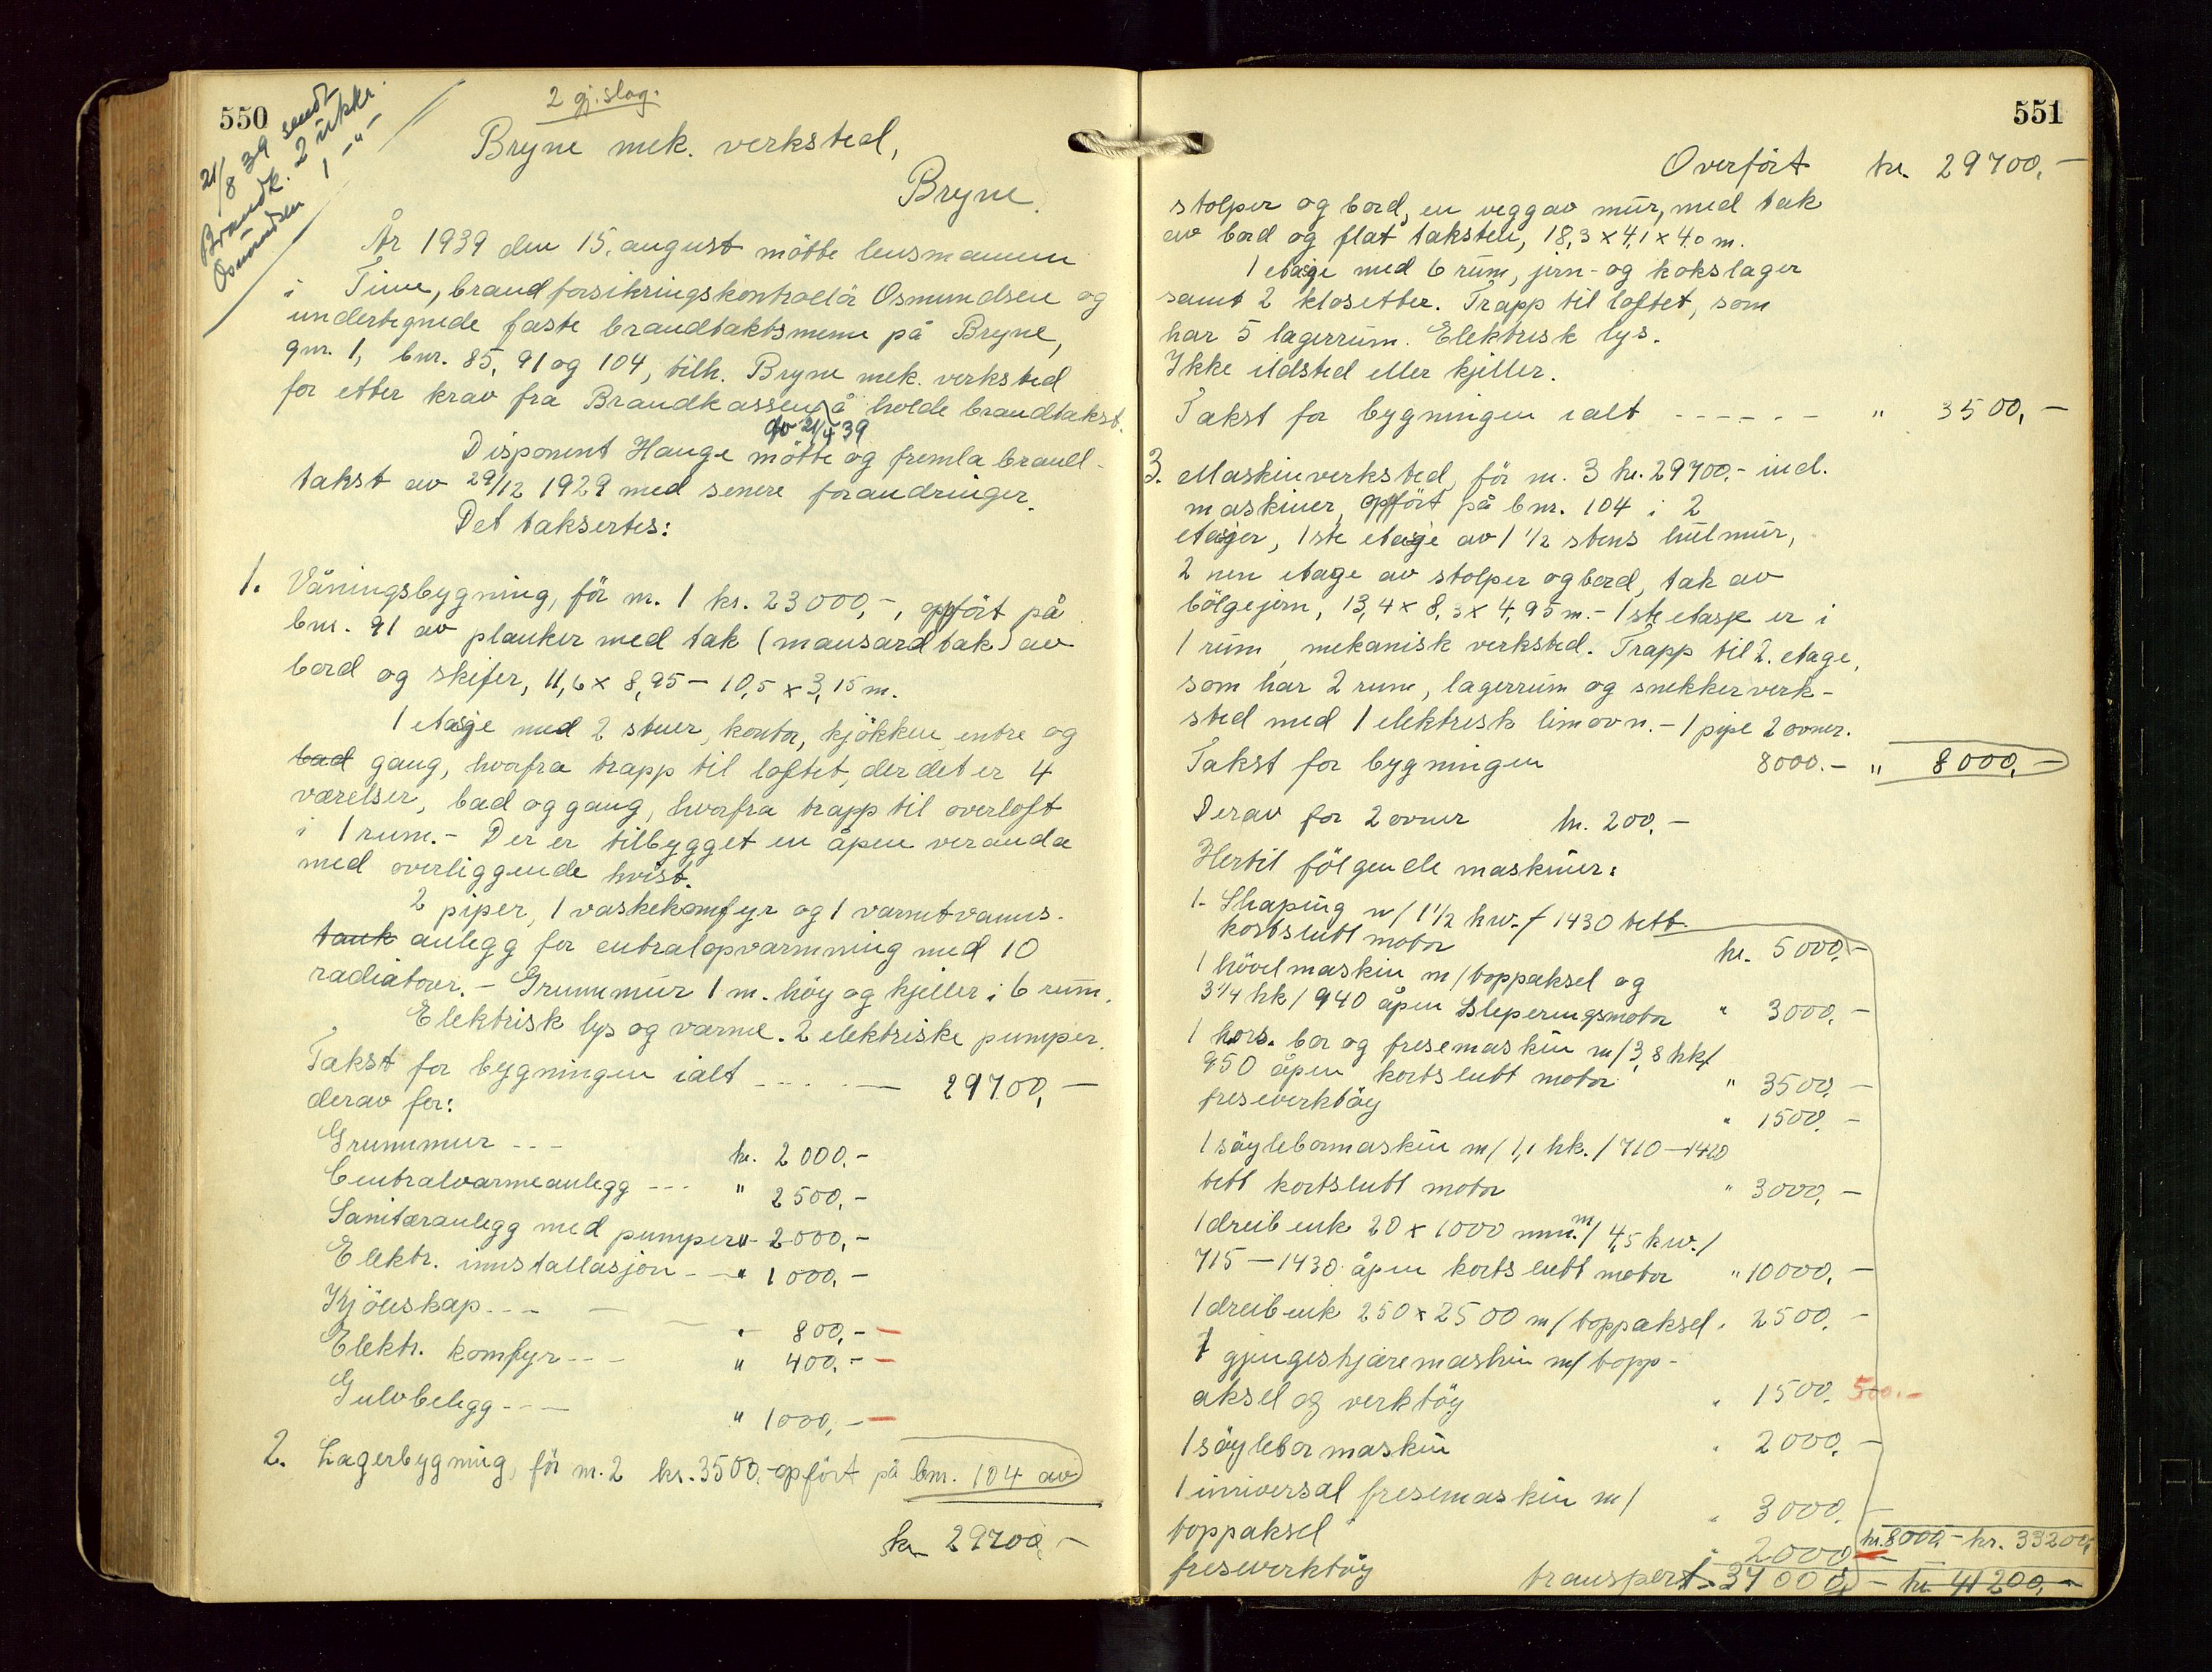 550
21/8 39 sendt
Brandk. 2 utskr.
Osmundsen 1 -"-
2 gj.slag.
Bryne mek. verksted,
Bryne.
År 1939 den 15. august møtte lensmannen
i Time, brandforsikringskontrollör Osmundsen og
undertegnede faste brandtakstmenn på Bryne,
gnr. 1, bnr. 85, 91 og 104, tilh. Bryne mek. verksted
for etter krav fra Brandkassen å holde brandtakst.
av 21/4 39
Disponent Hauge møtte og fremla brand-
takst av 29/12 1929 med senere forandringer.
Det taksertes:
1. Våningsbygning, för m. 1 kr. 23000,-, oppfört på
bnr. 91 av planker med tak (mansardtak) av
bord og skifer, 11,6 x 8,95 - 10,5 x 3,15 m.
1 etasje med 2 stuer, kontor, kjökken, entre og
bad gang, hvorfra trapp til loftet, der det er 4
værelser, bad og gang, hvorfra trapp til overloft
i 1 rum. - Der er tilbygget en åpen veranda
med overliggende kvist.
2 piper, 1 vaskekomfyr og 1 varmtvanns-
tank anlegg for centralopvarmning med 10
radiatorer. - Grunnmur 1 m. höy og kjeller i 6 rum.
Elektrisk lys og varme. 2 elektriske pumper.
Takst for bygningen ialt - - - - 29700,-
derav for:
Grunnmur - - - kr. 2000.-
Centralvarmeanlegg - - - " 2500,-
Sanitæranlegg med pumper " 2000,-
Elektr. innstallasjon - - " 1000,-
Kjöleskap - - - " 800,- -
Elektr. komfyr - - - " 400,- -
Gulvbelegg - - - " 1000,- -
2. Lagerbygning, för m. 2 kr. 3500,- opfört på bnr. 104 av
kr 29700,-
551
Overfört kr. 29700,-
stolper og bord, en vegg av mur, med tak
av bord og flat taksten, 18,3 x 4,1 x 4,0 m.
1 etasje med 6 rum, jern- og kokslager
samt 2 klosetter. Trapp til loftet, som
har 5 lagerrum. Elektrisk lys.
Ikke ildsted eller kjeller.
Takst for bygningen ialt - - - - - - " 3500,-
3. Maskinverksted, för m. 3 kr. 29700,- incl.
maskiner, oppfört på bnr. 104 i 2
etasjer, 1ste etasje av 1 1/2 stens hulmur,
2 nen etage av stolper og bord, tak av
bölgejern, 13,4 x 8,3 x 4,95 m. - 1ste etasje er i
1 rum, mekanisk verksted. Trapp til 2. etage,
som har 2 rum, lagerrum og snekkerverk-
sted med 1 elektrisk limovn. - 1 pipe 2 ovner.
Takst for bygningen 8000.- " 8000,-
Derav for 2 ovner kr. 200.-
Hertil fölgende maskiner:
1. Shaping m/ 1 1/2 kw. / 1430 tett
kortslutt motor kr. 5000,-
1 hövelmaskin m/toppaksel og
3 1/4 hk / 940 åpen sleperingsmotor " 3000,-
1 hors. bor og fresemaskin m/ 3,8 hk/
950 åpen kortslutt motor " 3500,-
freseverktöy " 1500,-
1 söylebormaskin m/ 1,1 hk. / 710 - 1420
tett kortslutt motor " 3000,-
1 dreibenk 20 x 1000 mm. m/ 4,5 kw. /
715 - 1430 åpen kortslutt motor " 10000,-
1 dreibenk 250 x 2500 m/ toppaksel " 2500,-
1 gjengeskjæremaskin m/ topp-
aksel og verktöy " 1500. 500.-
1 söylebormaskin " 2000,-
1 universal fresemaskin m/
toppaksel " 3000,-
freseverktöy " 2000,- kr. 8000,- kr. 33200,-
transport 37000,- kr 41200,-